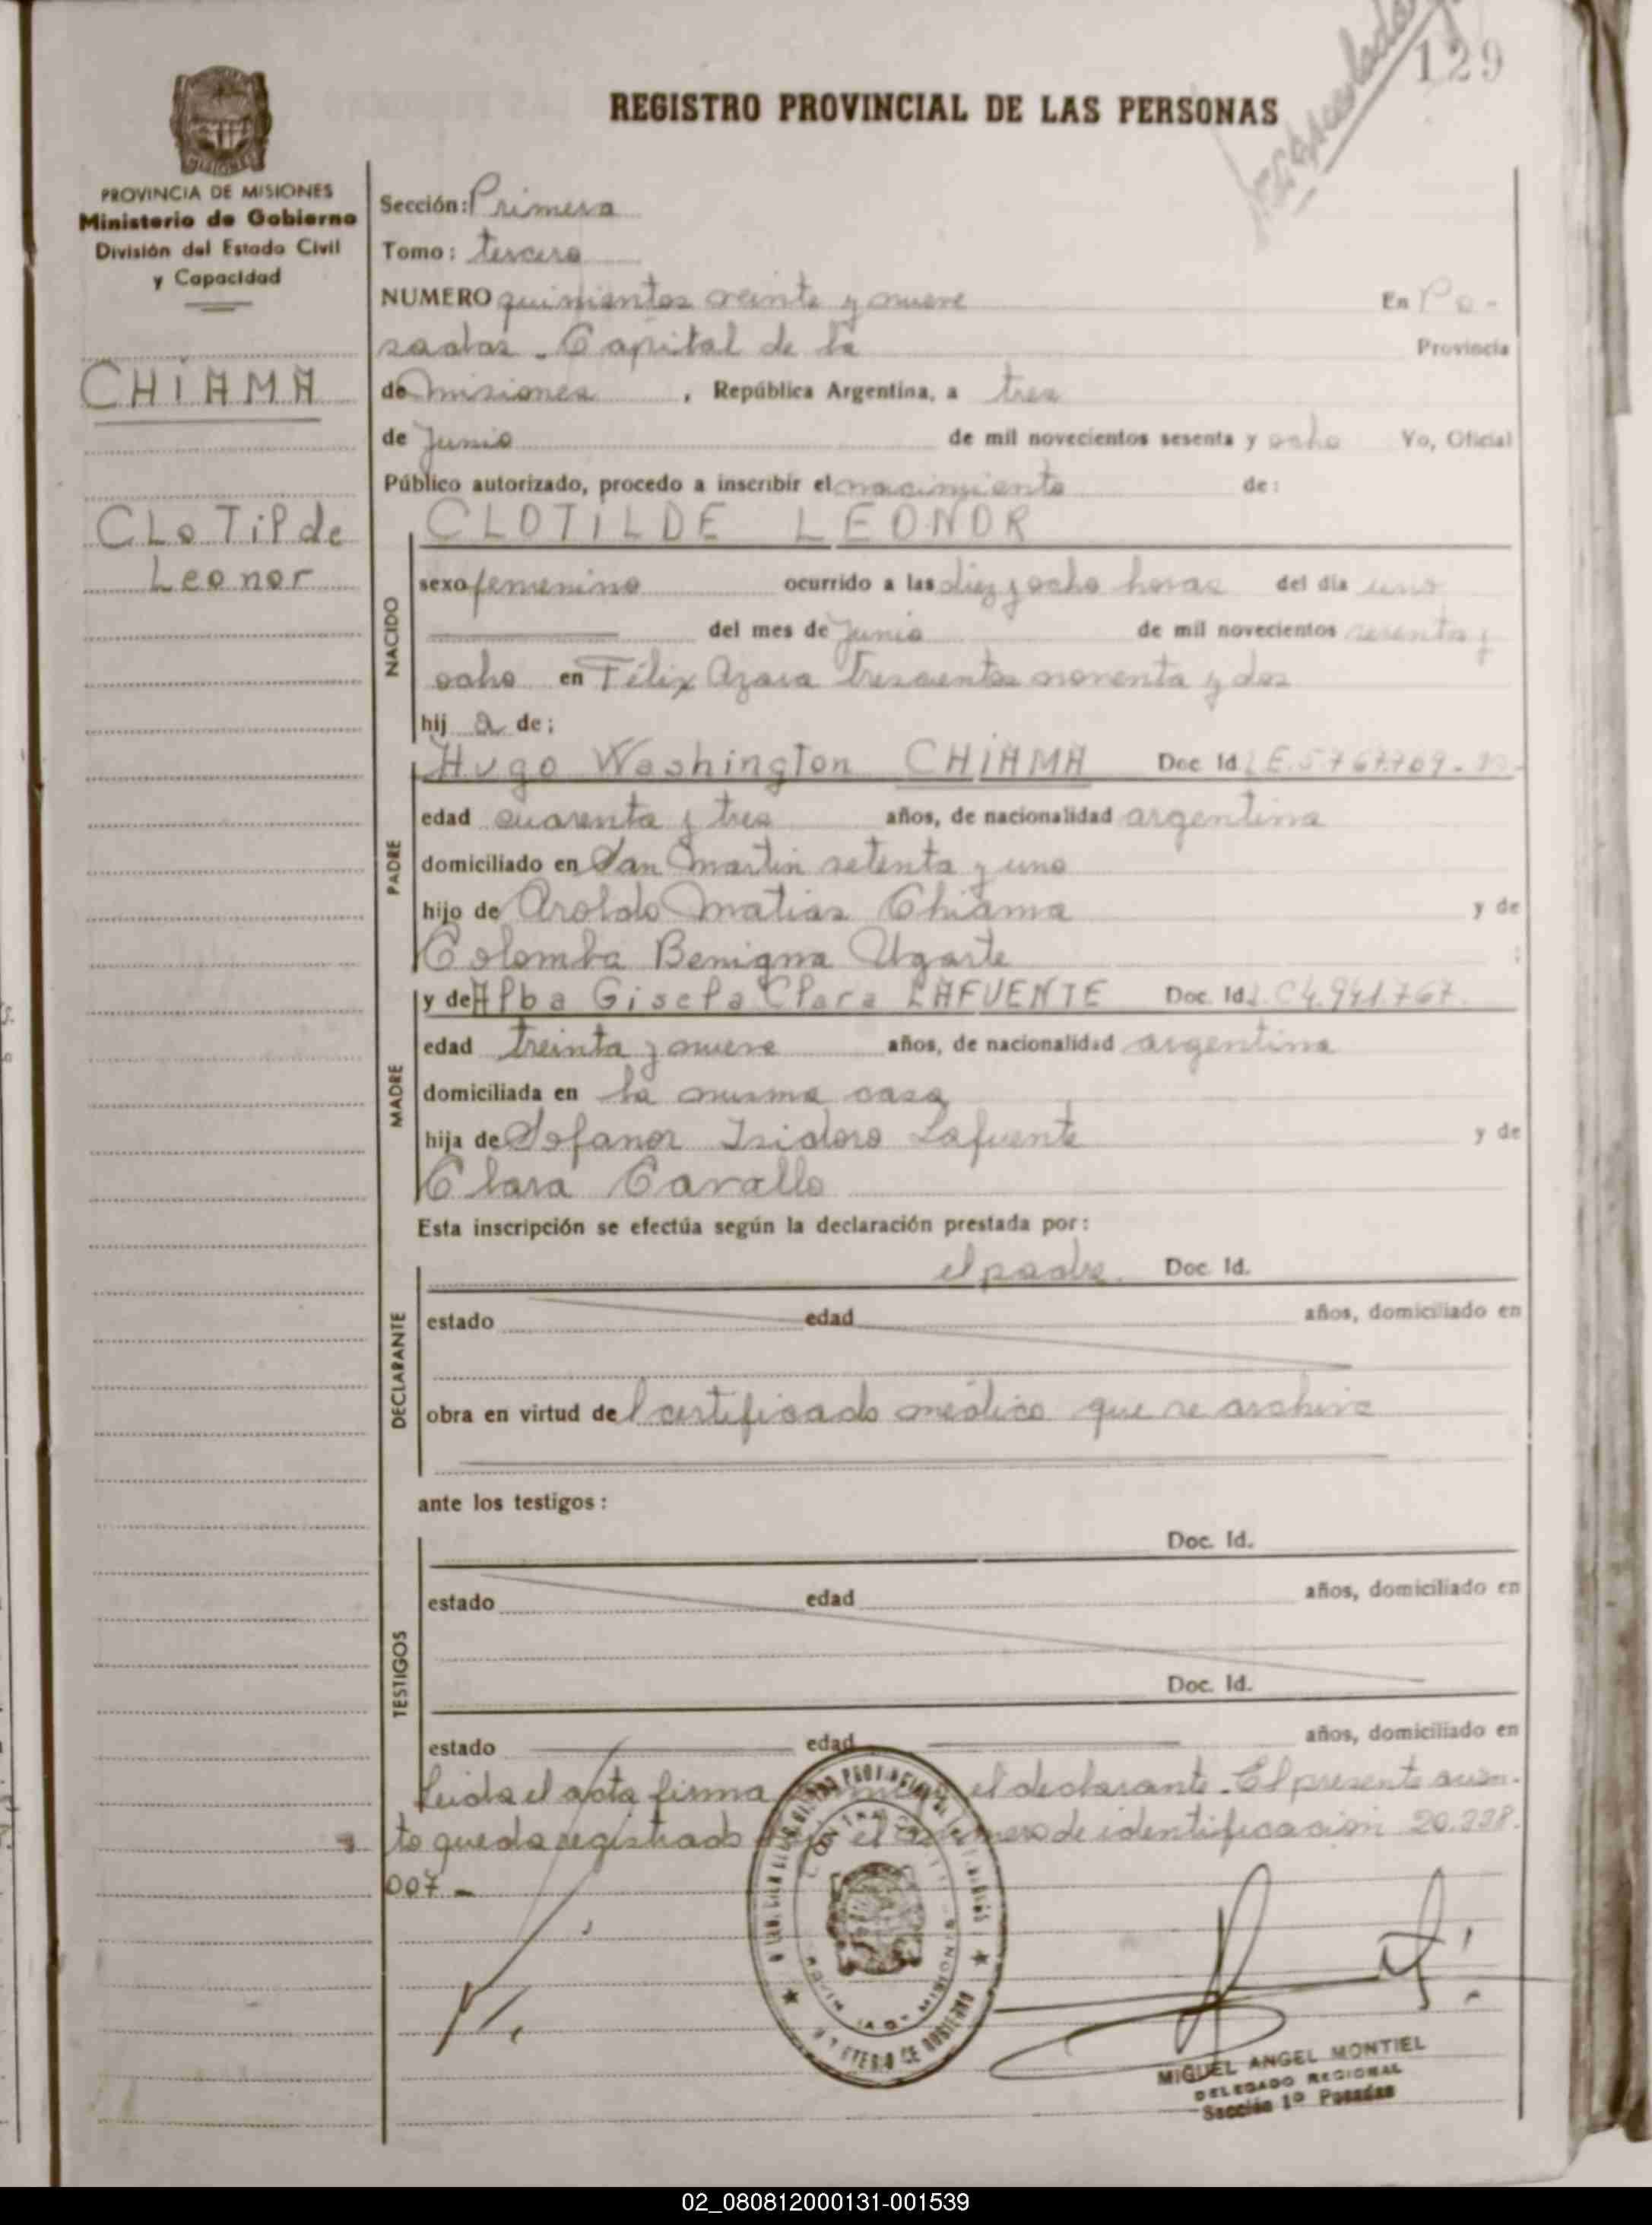 129
REGISTRO PROVINCIAL DE LAS PERSONAS
MISIONES
PROVINCIA DE MISIONES
Ministerio de Gobierno
División del Estado Civil
y Capacidad
CHIAMA
CLoTilde
Leonor
Sección: Primera
Tomo: tercero
NUMERO quinientos veinte y nueve En Po-
sadas - Capital de la Provincia
de misiones, República Argentina, a tres
de Junio de mil novecientos sesenta y ocho Yo, Oficial
Público autorizado, procedo a inscribir el nacimiento de:
CLOTILDE LEONOR
NACIDO
sexo femenino ocurrido a las diez y ocho horas del día uno
del mes de Junio de mil novecientos sesenta y
ocho en Félix Azara trescientos noventa y dos
hij a de:
PADRE
Hugo Washington CHIAMA Doc Id. L E. 5.767.709
edad cuarenta y tres años, de nacionalidad argentina
domiciliado en San Martin setenta y uno
hijo de Aroldo Matias Chiama y de
Colomba Benigna Ugarte ;
MADRE
y de Alba Gisela Clara LAFUENTE Doc. Id. L. C 4.941.767.
edad treinta y nueve años, de nacionalidad argentina
domiciliada en la misma casa
hija de Sofanor Isidoro Lafuente y de
Clara Cavallo
Esta inscripción se efectúa según la declaración prestada por:
DECLARANTE
el padre. Doc. Id.
estado edad años, domiciliado en
obra en virtud del certificado médico que se archiva
ante los testigos:
TESTIGOS
Doc. Id.
estado edad años, domiciliado en
Doc. Id.
estado edad años, domiciliado en
Leida el acta firma el declarante. El presente asien-
to queda registrado el número de identificación 20.338.
007 -
MIGUEL ANGEL MONTIEL
DELEGADO REGIONAL
Sección 1º Posadas
02_080812000131-001539